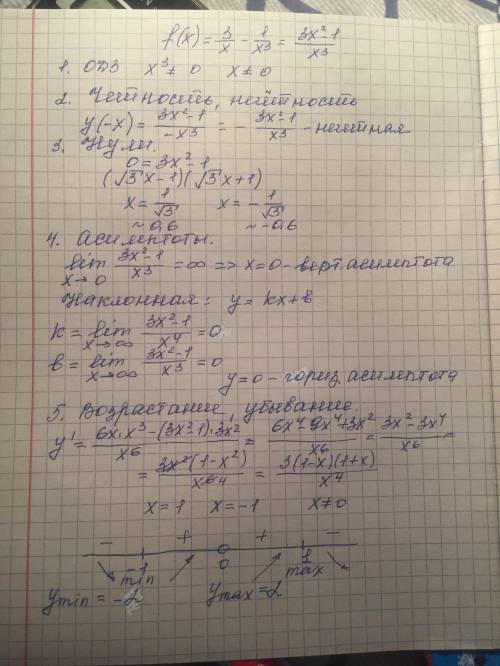 f(x) = 3/x - 1/x³ = (3x²-1)/x³
1. ОДЗ x³ ≠ 0 x ≠ 0
2. Четность, нечётность
y(-x) = (3x²-1)/(-x³) = - (3x²-1)/x³ - нечетная
3. Нули.
0 = 3x²-1
(√3x-1)(√3x+1)
x = 1/√3 x = - 1/√3
~0,6 ~-0,6
4. Асимптоты.
lim x→0 (3x²-1)/x³ = ∞ => x=0 - верт. асимптота
Наклонная: y = kx+b
k = lim x→∞ (3x²-1)/x⁴ = 0
b = lim x→∞ (3x²-1)/x³ = 0
y=0 - гориз. асимптота
5. Возрастание, убывание
y' = (6x·x³-(3x²-1)·3x²)/x⁶ = (6x⁴-9x⁴+3x²)/x⁶ = (3x²-3x⁴)/x⁶ =
= 3x²(1-x²)/x⁶⁴ = 3(1-x)(1+x)/x⁴
x = 1 x = -1 x≠0
- + + -
-1 0 1
min max
y min = -2 y max = 2